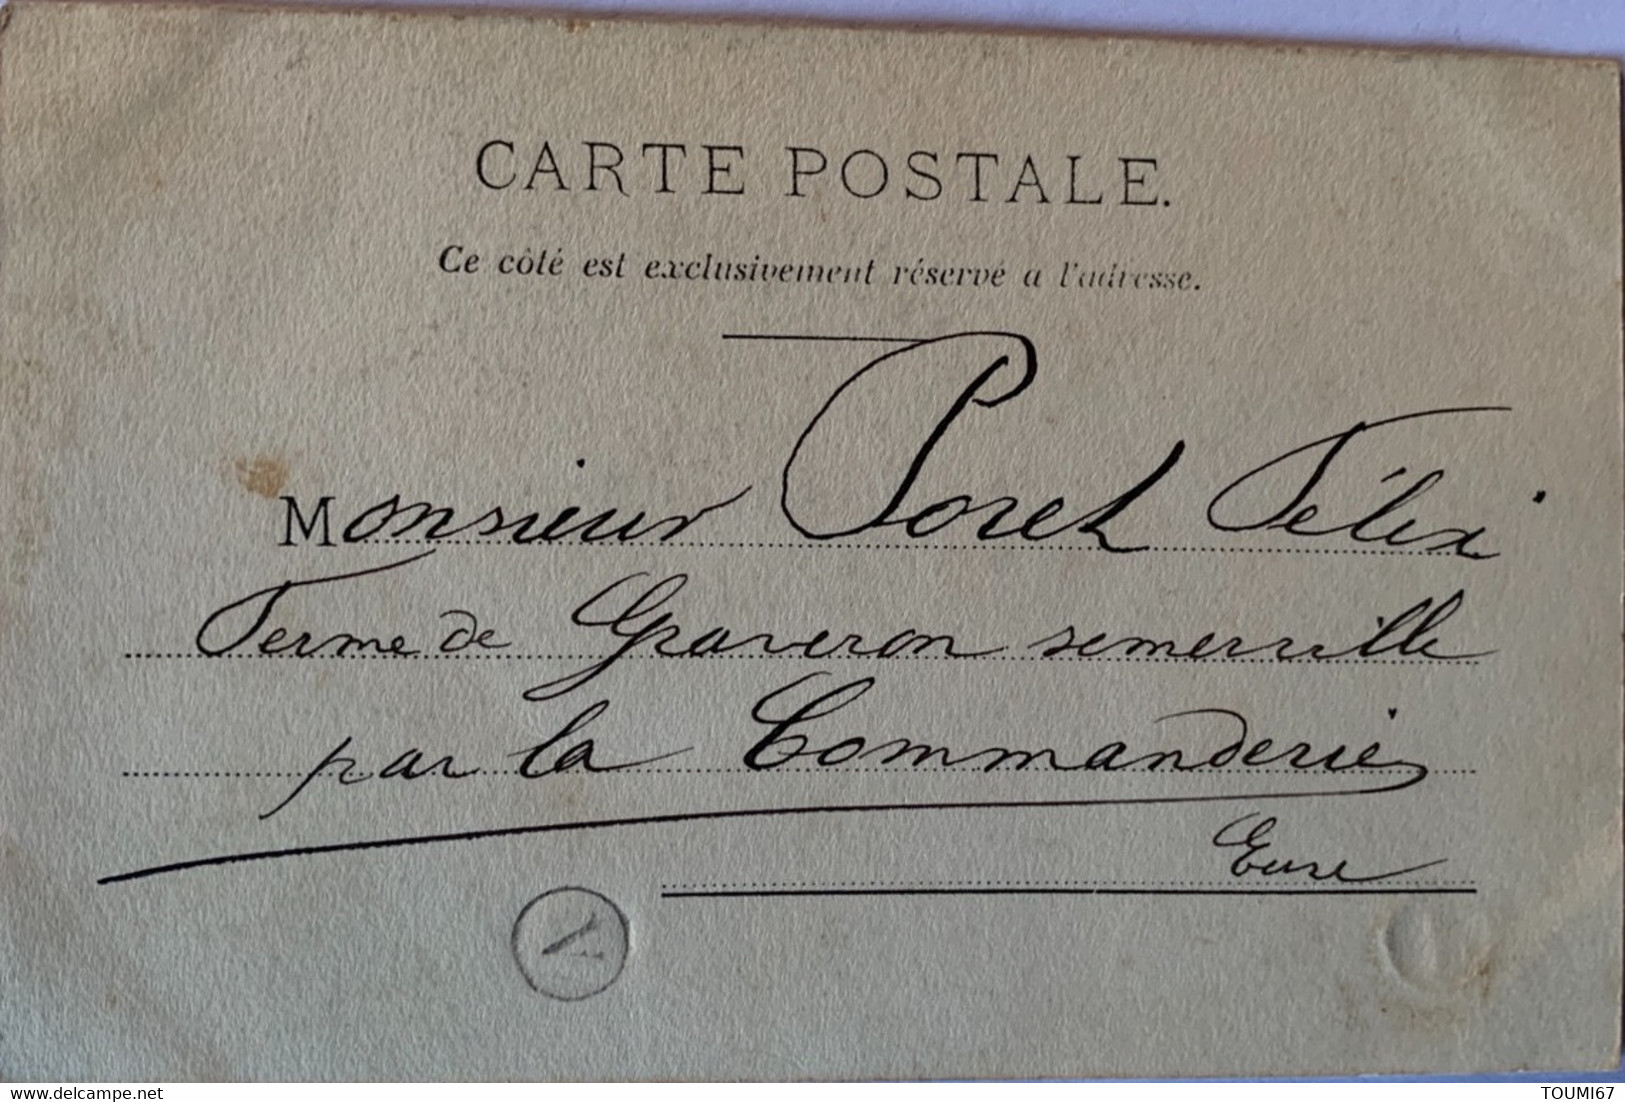 CARTE POSTALE.
Ce côté est exclusivement réservé a l'adresse.
Monsieur Poret Félix
Ferme de Graveron semerville
par la Commanderie
Eure
delcampe.net
TOUMI67